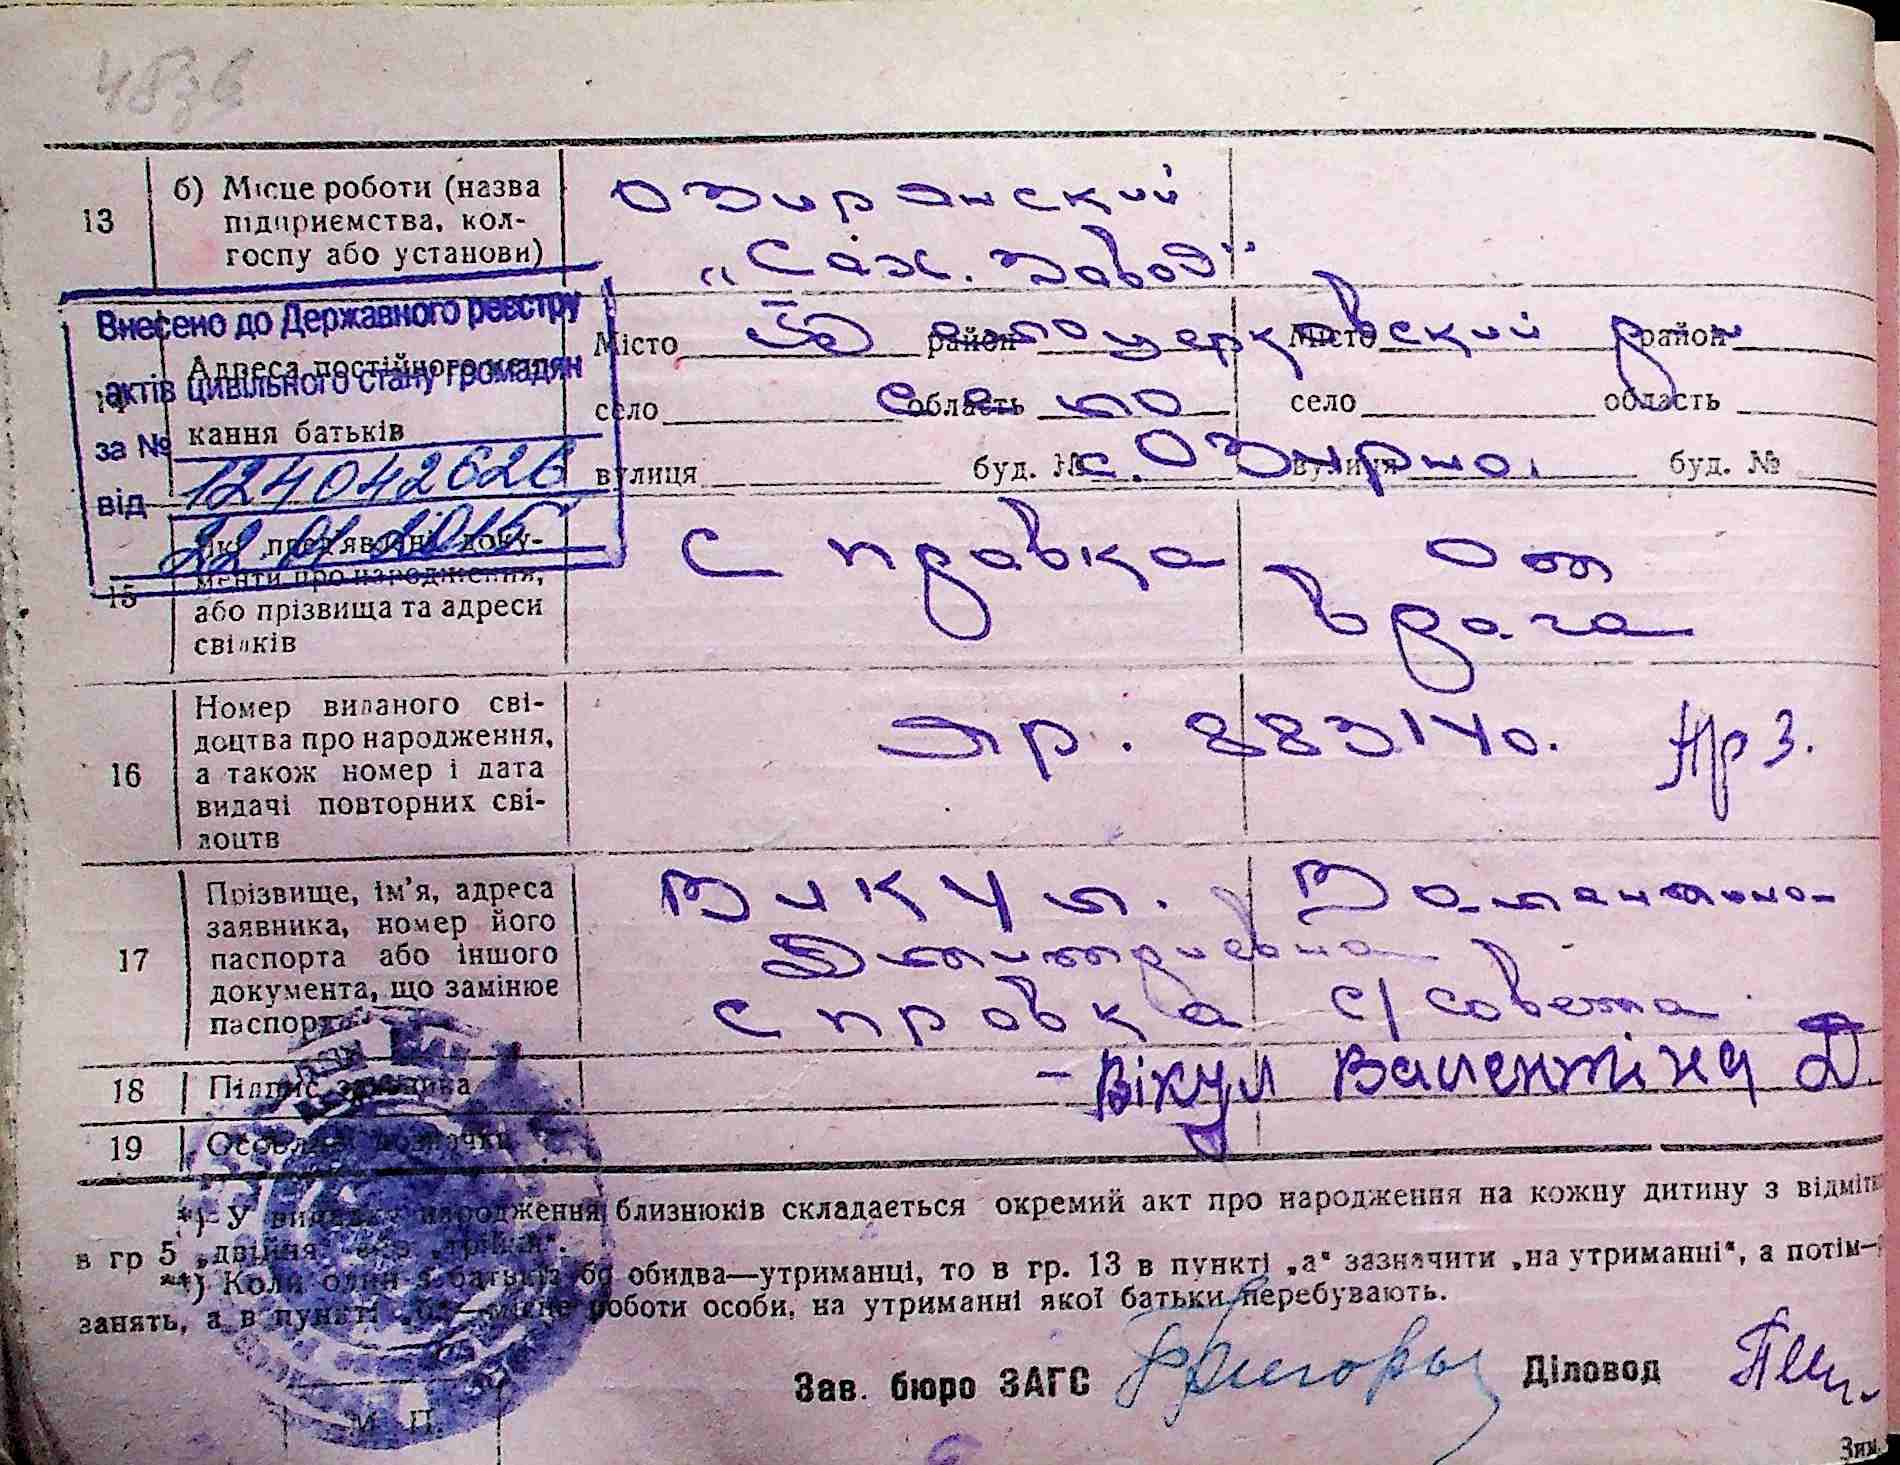 13
б) Місце роботи (назва
підприємства, кол-
госпу або установи)
Озирянский
„Сах. Завод"
Внесено до Державного реєстру
актів цивільного стану громадян
за №
124042626
від
22 01 2015
Адреса постійного
кання батьків
Місто район Місто район
Белоцерковский р-н
село область село область
село
вулиця буд. № вулиця буд. №
с. Озирно.
15
Які пред'явлені доку-
менти про народження,
або прізвища та адреси
свідків
Справка от
врача
16
Номер виданого сві-
доцтва про народження,
а також номер і дата
видачі повторних сві-
доцтв
883140.
17
Прізвище, ім'я, адреса
заявника, номер його
паспорта або іншого
документа, що замінює
паспорта
Викул. Валентина
Дмитриевна
Справка с/совета
18
Підпис заявника
- Вікул Валентіна Д.
19
Особливі позначки
*) У випадку народження близнюків складається окремий акт про народження на кожну дитину з відміткою
в гр 5 „двійня" або „трійня".
**) Коли один з батьків бо обидва—утриманці, то в гр. 13 в пункті „а" зазначити „на утриманні", а потім—
занять, а в пункті „б"—місце роботи особи, на утриманні якої батьки перебувають.
Зав. бюро ЗАГС
Діловод
М. П.